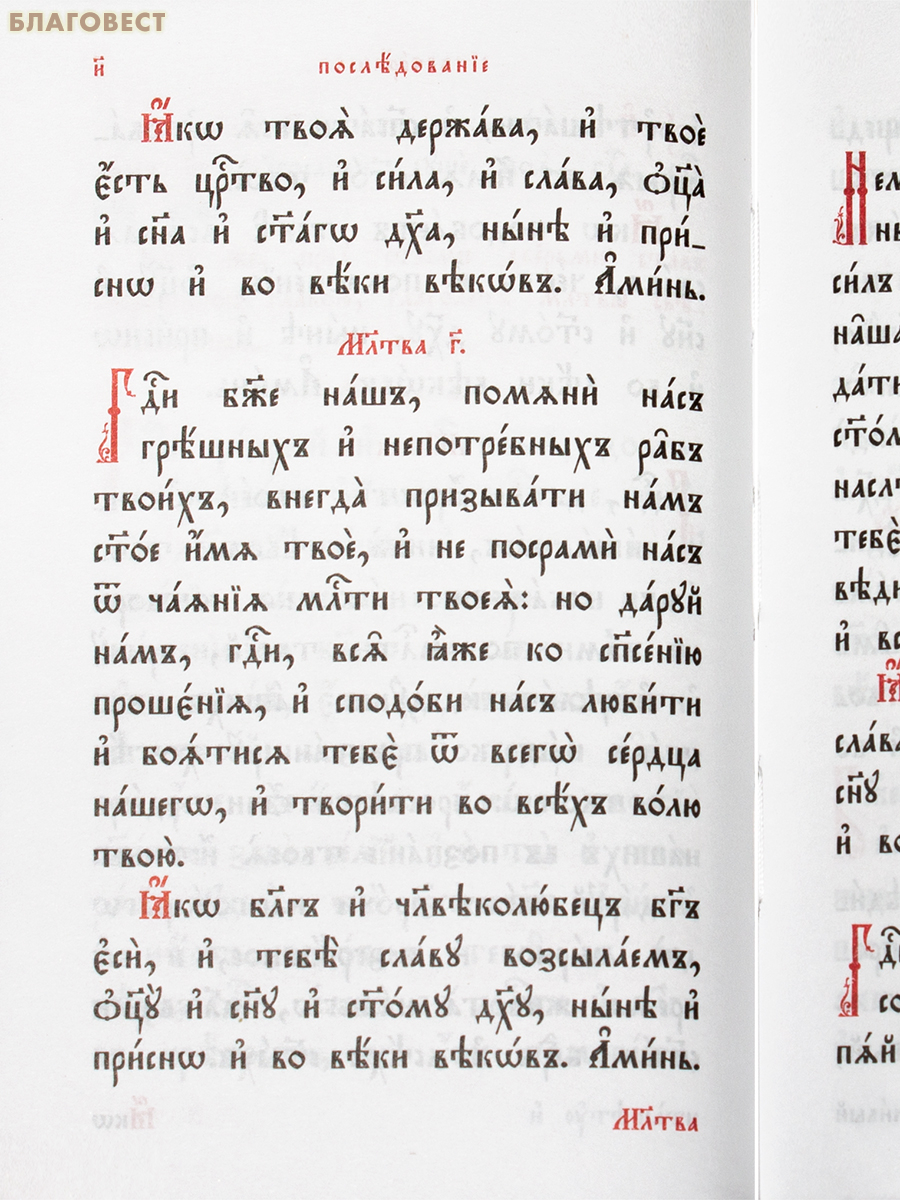 БЛАГОВЕСТ
и҃ послѣ́дованїе
Ꙗ҆́кѡ твоѧ̀ держа́ва, и҆ твоѐ
є҆́сть црⷭ҇тво, и҆ си́ла, и҆ сла́ва, ѻ҆ц҃а̀
и҆ сн҃а и҆ ст҃а́гѡ дх҃а, ны́нѣ и҆ при́_
снѡ и҆ во вѣ́ки вѣкѡ́въ. А҆ми́нь.
Мл҃тва г҃.
Гдⷭ҇и бж҃е на́шъ, помѧнѝ на́съ
грѣ́шныхъ и҆ непотре́бныхъ ра̑бъ
твои́хъ, внегда̀ призыва́ти на́мъ
ст҃о́е и҆́мѧ твоѐ, и҆ не посрамѝ на́съ
ѿ ча́ѧнїѧ млⷭ҇ти твоеѧ̀: но да́рꙋй
на́мъ, гдⷭ҇и, всѧ̑ ꙗ҆̀же ко сп҃се́нїю
проше́нїѧ, и҆ сподо́би на́съ люби́ти
и҆ боѧ́тисѧ тебє̀ ѿ всегѡ̀ се́рдца
на́шегѡ, и҆ твори́ти во всѣ́хъ во́лю
твою̀.
Ꙗ҆́кѡ бл҃гъ и҆ чл҃вѣколю́бецъ бг҃ъ
є҆сѝ, и҆ тебѣ̀ сла́вꙋ возсыла́емъ,
ѻ҆ц҃ꙋ̀ и҆ сн҃ꙋ и҆ ст҃о́мꙋ дх҃ꙋ, ны́нѣ и҆
при́снѡ и҆ во вѣ́ки вѣкѡ́въ. А҆ми́нь.
Мл҃тва
си́лъ
сла́ва
сн҃ꙋ